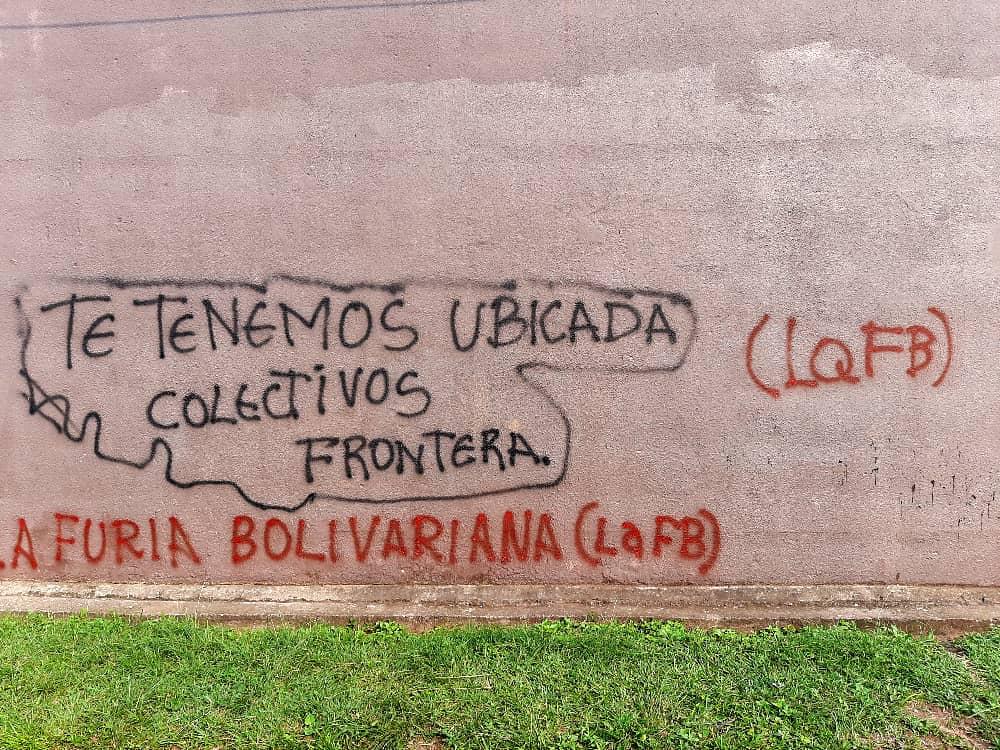 TE TENEMOS UBICADA
COLECTIVOS
FRONTERA.
(LaFB)
LA FURIA BOLIVARIANA (LaFB)